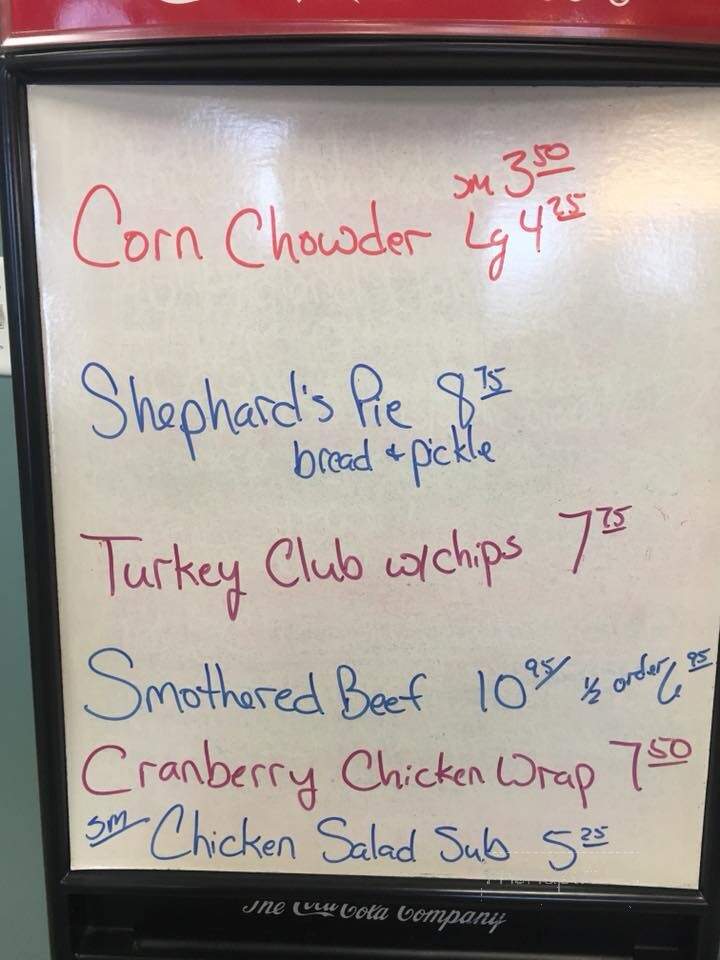 sm 3 50
Corn Chowder Lg 4 25
Shephard's Pie 8 75
bread + pickle
Turkey Club w/chips 7 75
Smothered Beef 10 95 1/2 order 6 95
Cranberry Chicken Wrap 7 50
sm Chicken Salad Sub 5 25
The Coca Cola Company